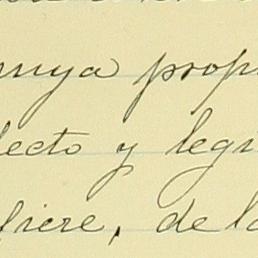 muya prop
lecto y legi
fiere, de la